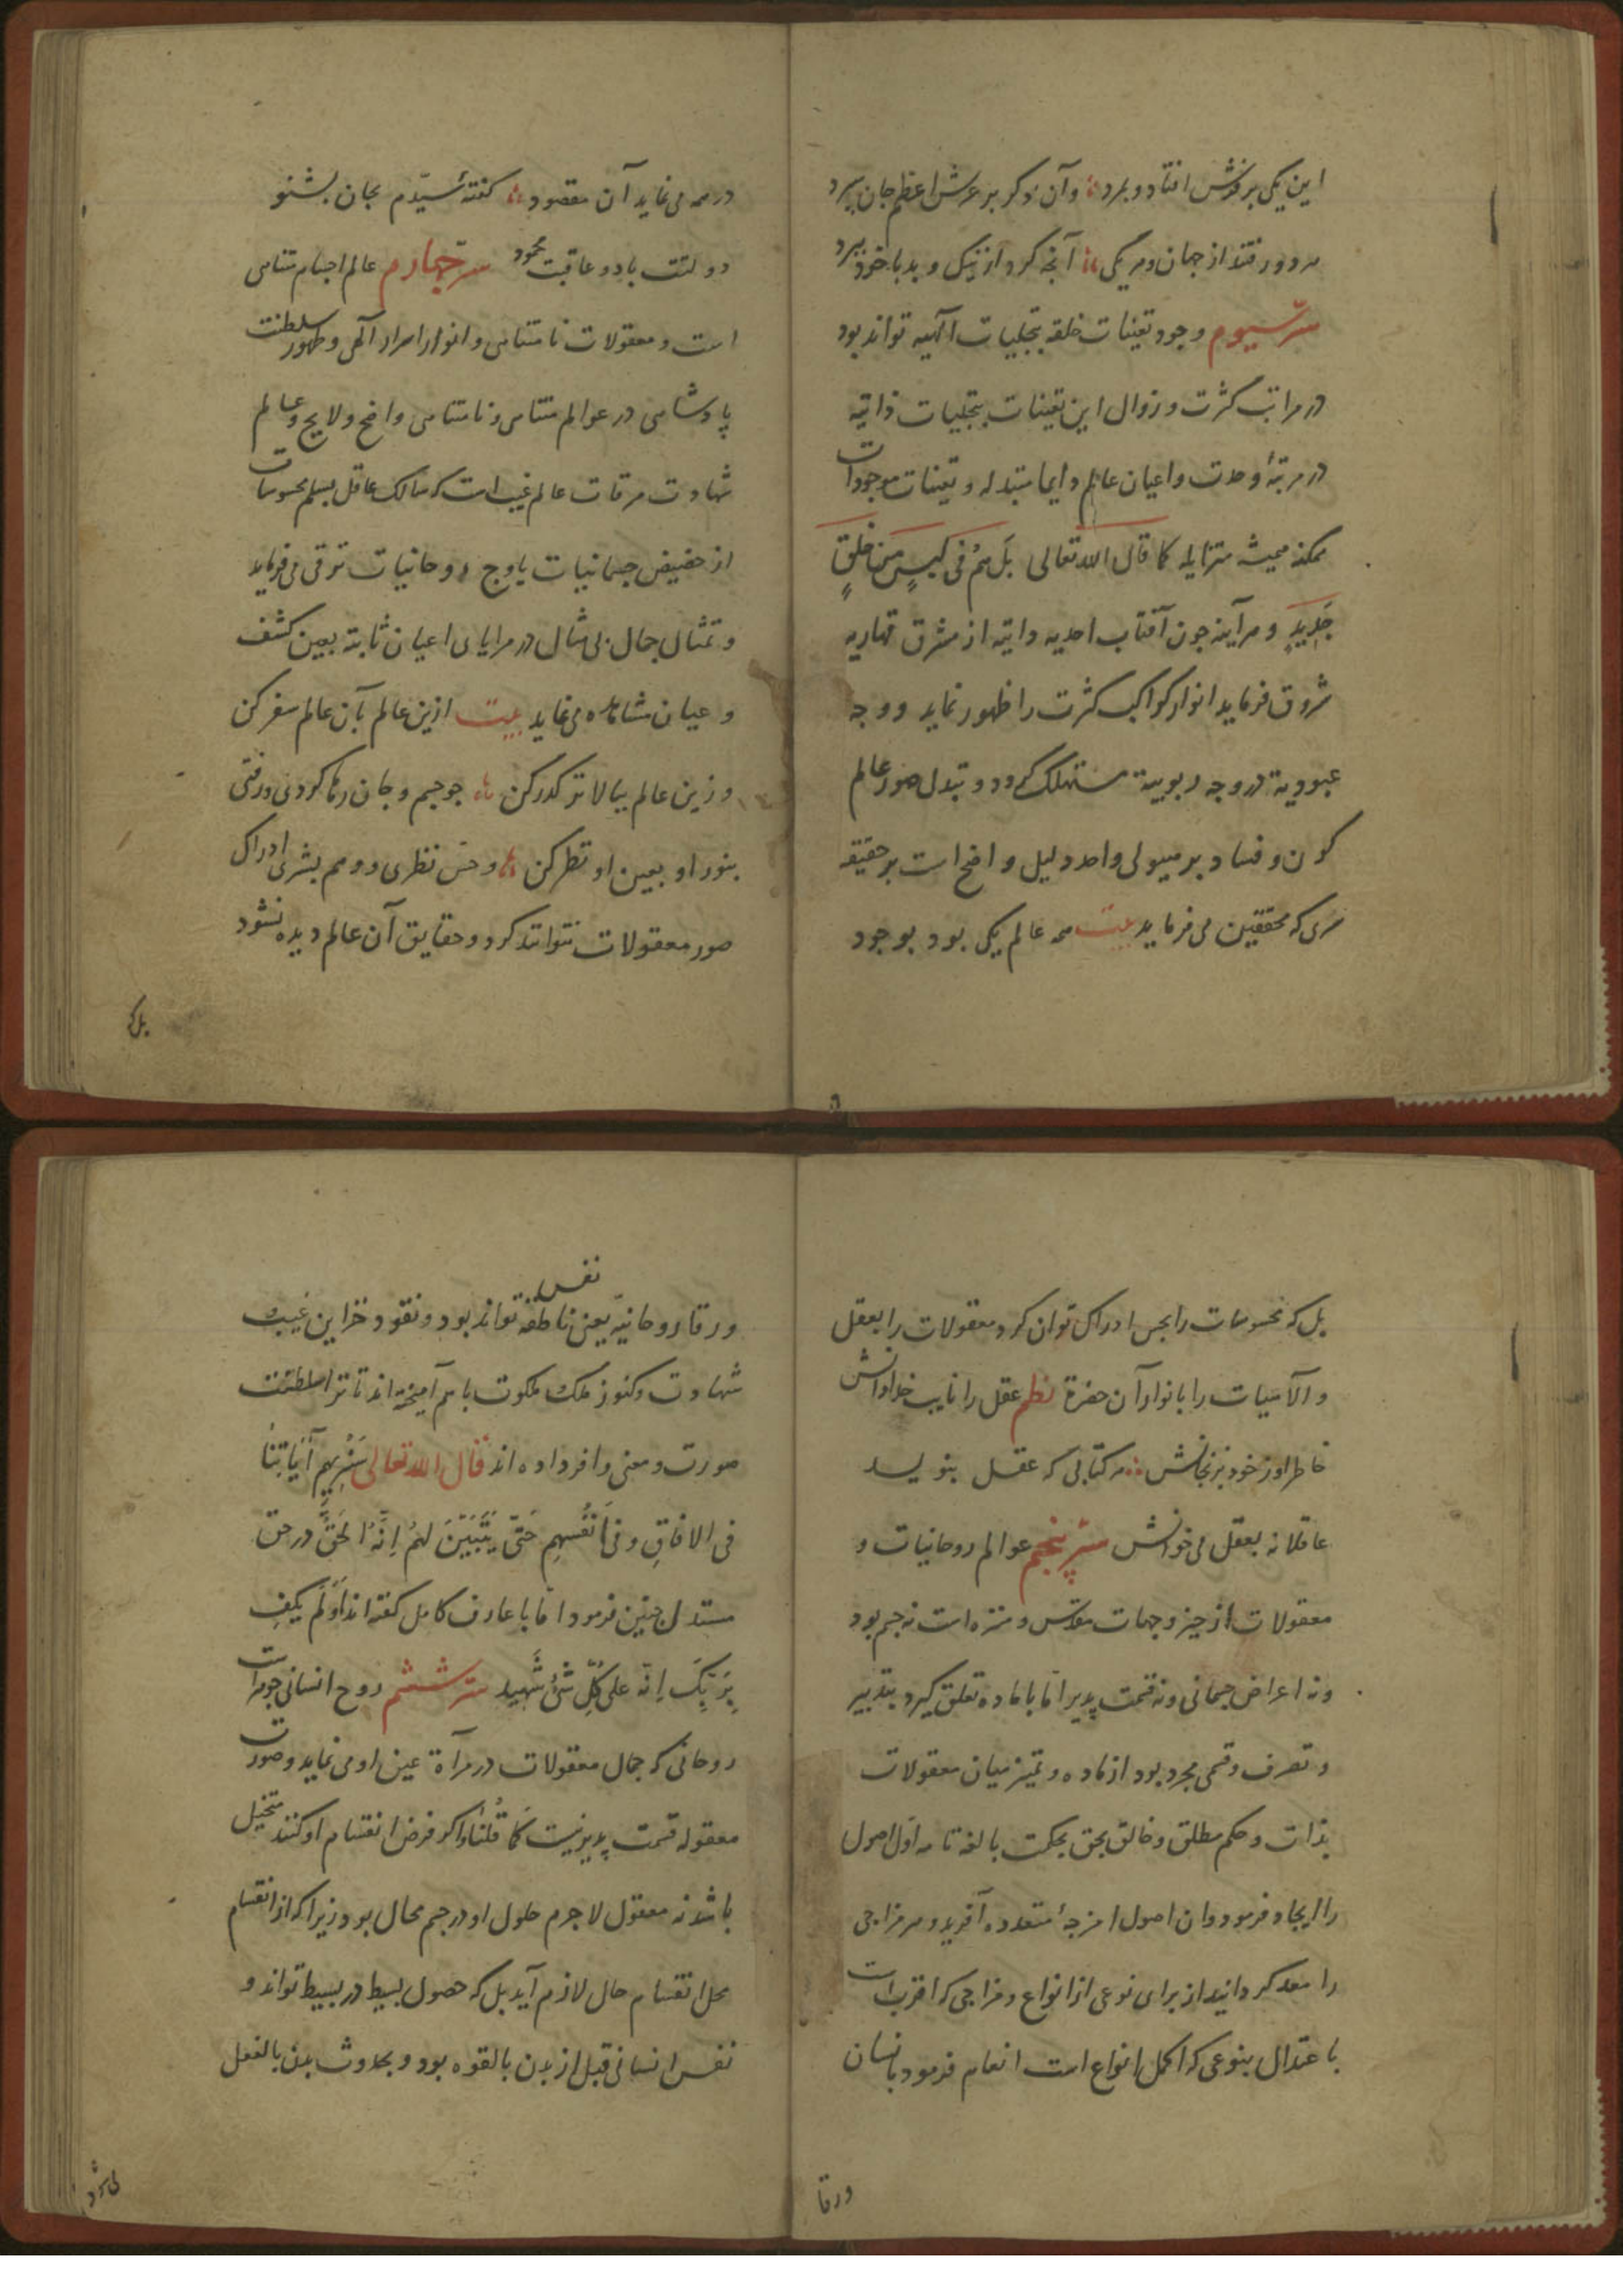 این یکی بر فرش افتاد و بمرد وآن دگر بر عرش اعظم جان سپرد
هر دو رفتند از جهان و هر یکی آنچه کرد از نیک و بد با خود ببرد
سرّ سیوم وجود تعینات خلقیه بتجلیات الهیه تواند بود
در مراتب کثرت و زوال این تعینات بتجلیات ذاتیه
در مرتبهٔ وحدت و اعیان عالم دایما متبدله و تعینات موجودات
ممکنه همیشه متزایله کما قال الله تعالی بَل هُم فی لَبسٍ مِن خَلقٍ
جَدِیدٍ و هرآینه چون آفتاب احدیه ذاتیه از مشرق قهاریه
شروق فرماید انوار کواکب کثرت را ظهور نماید و وجه
عبودیة در وجه ربوبیة مستهلک گردد و تبدل صور عالم
کون و فساد بر هیولی واحد دلیل واضح است بر حقیقه
سری که محققین می فرماید بیت همه عالم یکی بود بوجود
در همه می نماید آن مقصود گفتهٔ سیّدم بجان بشنو
دولتت باد و عاقبت محمود سرّ چهارم عالم اجسام متناهی
است و معقولات نامتناهی و انوار اسرار الهی و ظهور سلطنت
پادشاهی در عوالم متناهی و نامتناهی واضح و لایح و عالم
شهادت مرقات عالم غیب است که سالک عاقل بسلم محسوسات
از حضیض جسمانیات باوج روحانیات ترقی می فرماید
و تمثال جمال بی مثال در مرایای اعیان ثابته بعین کشف
و عیان مشاهده می نماید بیت ازین عالم بآن عالم سفر کن
وزین عالم ببالاتر گذر کن چو جسم و جان رها کردی و رفتی
بنور او بعین او نظر کن و حس نظری و وهم بشری ادراک
صور معقولات نتوانند کرد و حقایق آن عالم دیده نشود
بل که
بل که محسوسات را بحس ادراک توان کرد و معقولات را بعقل
و الآهیات را بانوار آن حضرة نظم عقل را نایب خدا دانش
خاطر او ز خود مرنجانش هر کتابی که عقل بنویسد
عاقلانه بعقل می خوانش سرّ پنجم عوالم روحانیات و
معقولات از حیز و جهات مقدس و منزه است نه جسم بود
و نه اعراض جسمانی و نه قسمت پذیر اما با ماده تعلق گیرد بتدبیر
و تصرف و قسمی مجرد بود از ماده و تمیز میان معقولات
بذات و حکم مطلق و خالق بحق بحکمت بالغه تامه اول اصول
را ایجاد فرمود و ازان اصول امزجهٔ متعدده آفرید و هر مزاجی
را معد گردانید از برای نوعی از انواع و مزاجی که اقرب است
باعتدال بنوعی که اکمل انواع است انعام فرمود بانسان
ورقا
نفس
ورقا روحانیّه یعنی ناطقه تواند بود و نقود خزاین غیب
شهادت و کنوز ملک ملکوت باهم آمیخته اند تا ترا سلطنت
صورت و معنی وافر داده اند قال الله تعالی سَنُرِیهِم آیَاتِنَا
فی الافاقِ و فی اَنفُسِهِم حَتّی یَتَبَیَّنَ لَهُم اِنَّهُ الحَقُّ در حق
مستدل چنین فرمود اما با عارف کامل گفته اند اَوَلَم یَکفِ
بِرَبِّکَ اِنّه علی کُلِّ شَیءٍ شَهید سرّ ششم روح انسانی جوهر است
روحانی که جمال معقولات در مرآة عین او می نماید و صورت
معقوله قسمت پذیر نیست کَمَا قُلنَا و اگر فرض انقسام او کنند متخیل
باشد نه معقول لاجرم حلول او در جسم محال بود زیرا که از انقسام
محل انقسام حال لازم آید بل که حصول بسیط در بسیط تواند و
نفس انسانی قبل از بدن بالقوه بود و بحدوث بدن بالفعل